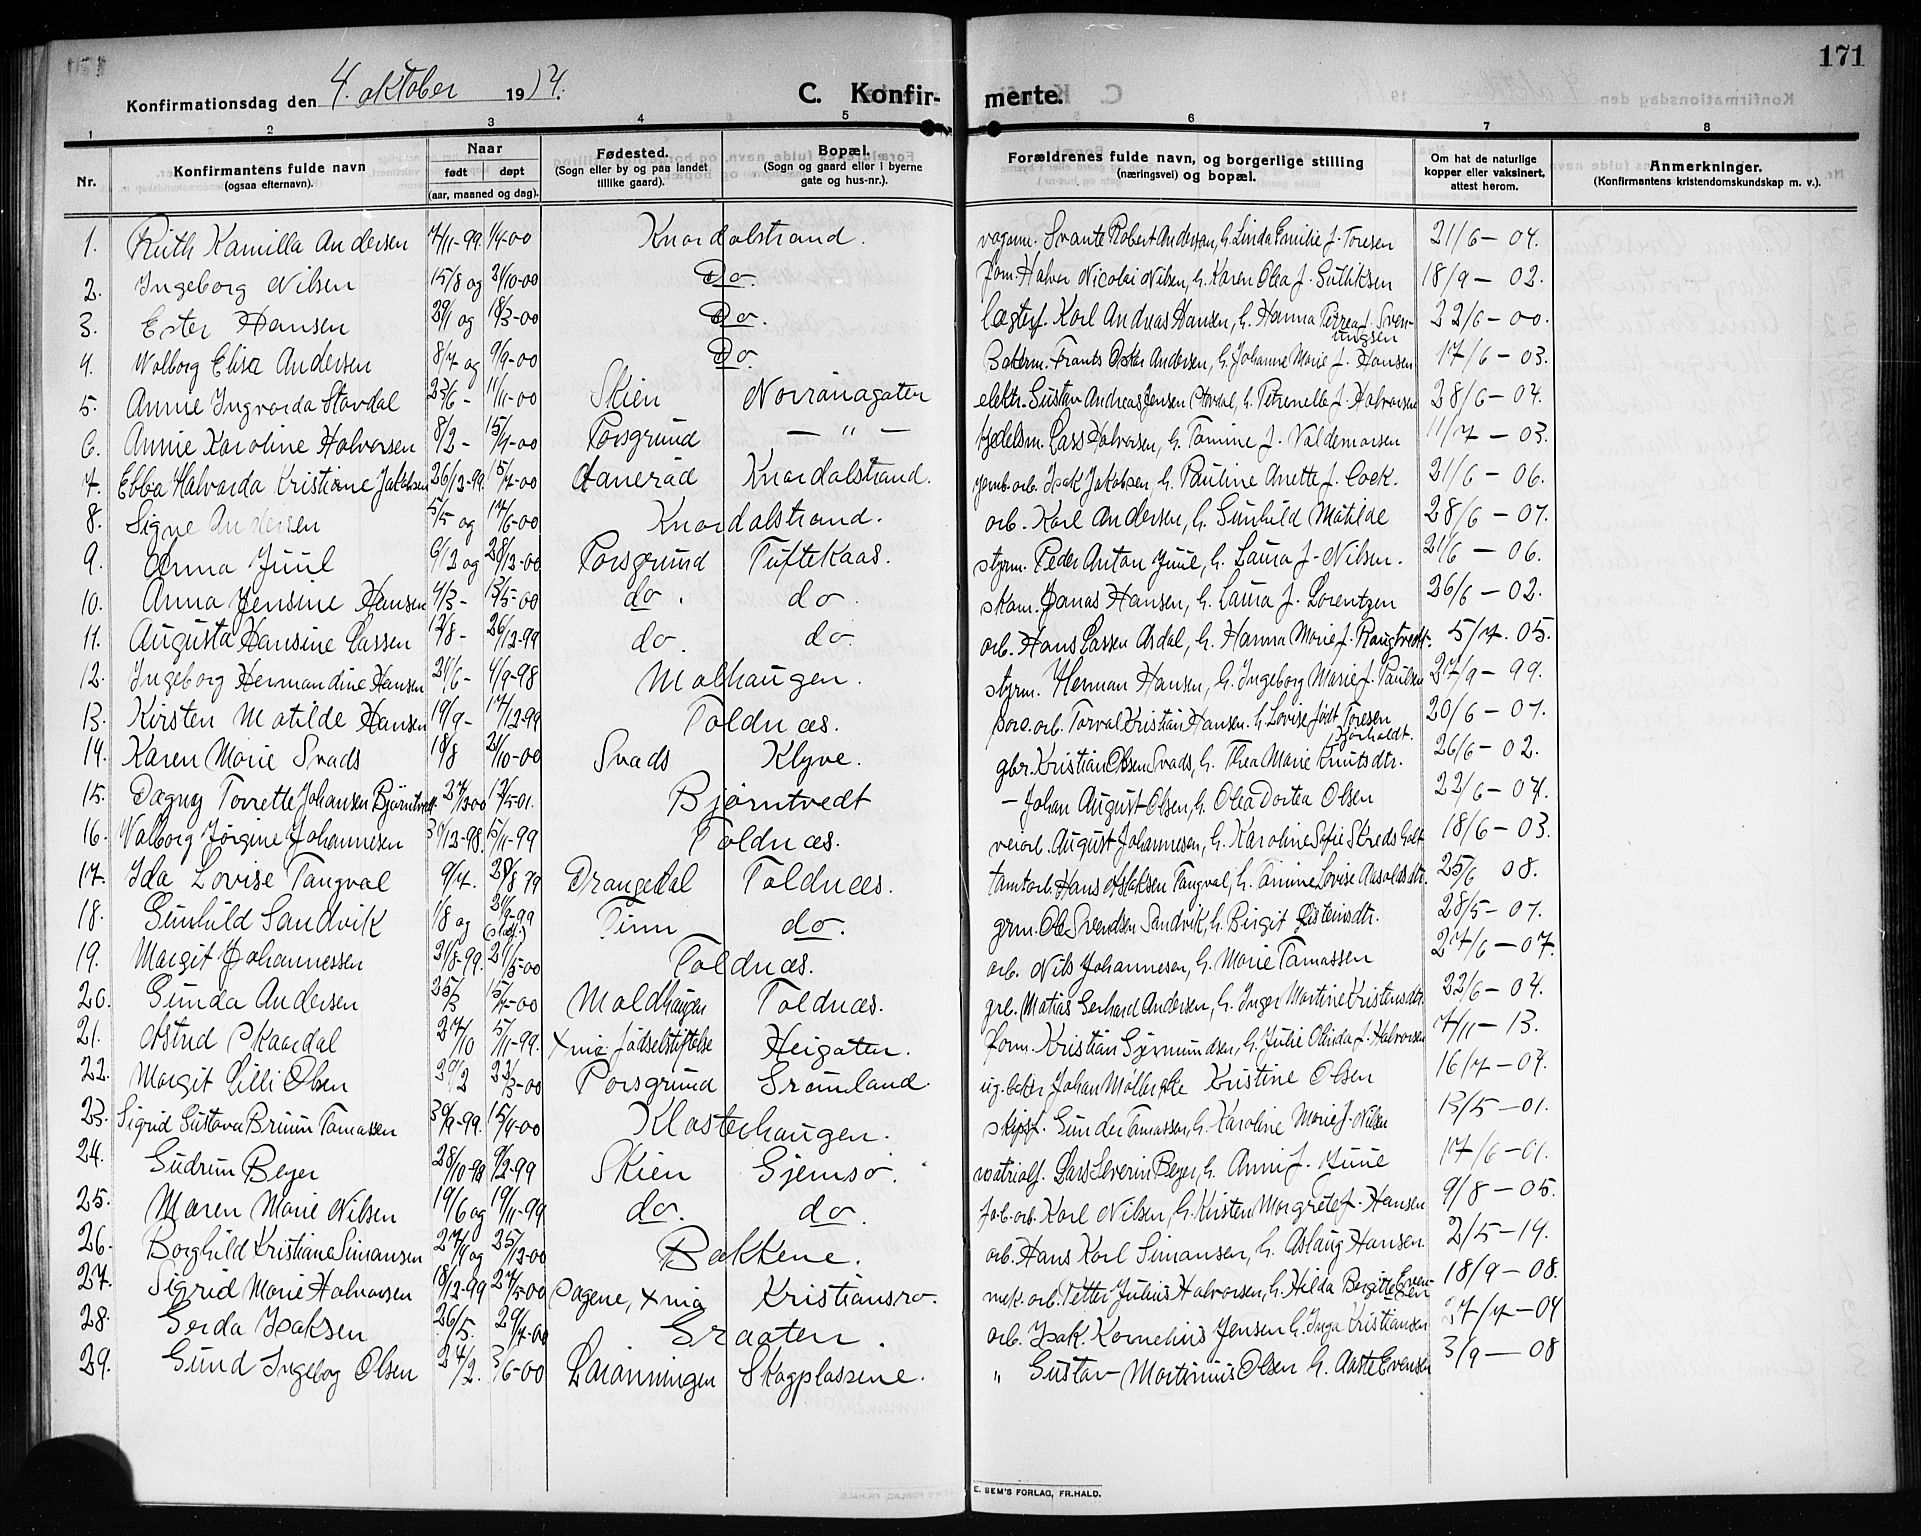 171
Konfirmationsdag den 4. oktober 1914.
C. Konfirmerte.
1 2 3 4 5 6 7 8
Nr. Konfirmantens fulde navn (ogsaa efternavn). Naar født døpt (aar, maaned og dag). Fødested. (Sogn eller by og paa landet tillike gaard). Bopæl. (Sogn og gaard eller i byerne gate og hus-nr.). Forældrenes fulde navn, og borgerlige stilling (næringsvei) og bopæl. Om hat de naturlige kopper eller vaksinert, attest herom. Anmerkninger. (Konfirmantens kristendomskundskap m. v.).
1. Ruth Kamilla Andersen 7/11-99. 1/4-00 Knardalstrand. vognm. Svante Robert Andersen, h. Linda Emilie f. Toresen 21/6 - 04.
2. Ingeborg Nilsen 15/8 og 21/10-00 Do. form. Halvor Nicolai Nilsen, h. Karen Olea f. 18/9 - 02.
3. Ester Hansen 29/1 og 18/3-00 Do. Karl Andreas Hansen, h. Hanna Petrea f. Svenningsen 22/6 - 00.
4. Valborg Elise Andersen 8/7 og 9/9-00 Do. Frants Oskar Andersen, h. Johanne Marie f. Hansen 17/6 - 03.
5. Annie Ingvarda Stavdal 23/6 - 11/11-00 Skien Norrønagaten elektr. Gustav Andreas Jensen Stavdal, h. Petrenelle f. Halvorsen 28/6 - 04.
6. Annie Karoline Halvorsen 8/2 - 15/4-00 Porsgrund — " — Lars Halvorsen, h. Tomine f. Valdemarsen 11/7 - 03.
7. Ebba Halvarda Kristiane Jakobsen 26/12-99. 15/7-00 Knardalstrand. jernb. arb. Isak Jakobsen, h. Pauline Anette f. Cock. 21/6 - 06.
8. Signe Andersen 5/5 og 17/6-00 Knardalstrand. arb. Karl Andersen, h. Gunhild Matilde 28/6 - 07.
9. Anna Juul 6/12 og 28/12-00 Porsgrund Tuftekaas. styrm. Peder Anton Juul, h. Laura f. Nilsen. 21/6 - 06.
10. Anna Jensine Hansen 4/3 - 13/5-00 do. do. Jonas Hansen, h. Laura f. Lorentzen 26/6 - 02.
11. Augusta Hansine Larsen 12/8 - 26/12-99 do. do. arb. Hans Larsen Asdal, h. Hanna Marie f. 5/7. 05.
12. Ingeborg Hermandine Hansen 21/6 - 4/9-98 Molhaugen. styrm. Herman Hansen, h. Ingeborg Marie f. Paulsen 27/9 - 99.
13. Kirsten Matilde Hansen 19/9 - 17/12-99 Toldnæs. arb. Torval Kristian Hansen. h. Lovise født Toresen 20/6 - 07.
14. Karen Marie Svads 18/8 21/10-00 Svads Klyve. gbr. Kristian Olsen Svads, h. Thea Marie Knutsdtr. 26/6 - 02.
15. Dagny Torrette Johansen Bjørntvedt 12/5-01. Bjørntvedt — Johan August Olsen, h. Olea Dortea Olsen 22/6 - 04.
16. Valborg Jørgine Johannesen 5/11-99 Toldnæs. August Johannesen, h. Karoline Sofie 18/6 - 03.
17. Ida Lovise Tangval 9/7. 28/8 99 Drangedal Toldnæs. tomtarb. Hans Tangval, h. Tomine Lovise 25/6 08.
18. Gunhild Sandvik 1/8 og Tinn do. Ole Svendsen Sandvik, h. Birgit 28/5 - 07.
19. Margit Johannessen 21/8-99. 21/5-00 Toldnæs. arb. Nils Johannesen, h. Marie Tomassen 27/6 - 07.
20. Gunda Andersen 25/3 15/7-00 Moldhaugen Toldnæs. Matias Gerhard Andersen, h. Inger Martine Kristensdtr. 22/6 - 04.
21. Astrid Skaardal 27/10 5/11-99. Xnia fødselstiftelse Heigaten. form. Kristian Gjermundsen, h. Julie Olinda f. Halvorsen 7/11 - 13.
22. Margit Lilli Olsen 20/2 Porsgrund Grønland. ug. baker Johan Kristine Olsen 16/7 - 07.
23. Sigrid Gustava Bruun Tomassen 15/4-00 Klosterhaugen. skipsf. Gunder Tomassen, h. Karoline Marie f. Nilsen 13/5 - 01.
24. Gudrun Beyer Skien Gjemsø. Lars Severin Beyer, h. Anni f. Juul 17/6 - 01.
25. Maren Marie Nilsen 19/6 og 19/11-99 do. do. fab. arb. Karl Nilsen, h. Kirsten Margrete f. Hansen 9/8 - 05.
26. Borghild Kristiane Simonsen 25/12-00 Bakkene. arb. Hans Karl Simonsen, h. Aslaug Hansen. 2/5 - 14.
27. Sigrid Marie Halvorsen 18/12-99 27/5-00 Xnia Kristiansro. mek. arb. Petter Julius Halvorsen, h. Hilda Birgitte Evensen 18/9 - 08.
28. Gerda Isaksen 26/5. 29/7-00 Graaten. arb. Isak Kornelius Jensen h. Inga Kristiansen 27/7 - 04
29. Gund Ingebog Olsen 24/2. 3/6-00 Skogplassene. " Gustav Martinius Olsen h. Aaste Evensen 3/9 - 08
E. SEM'S FORLAG, FR.HALD.